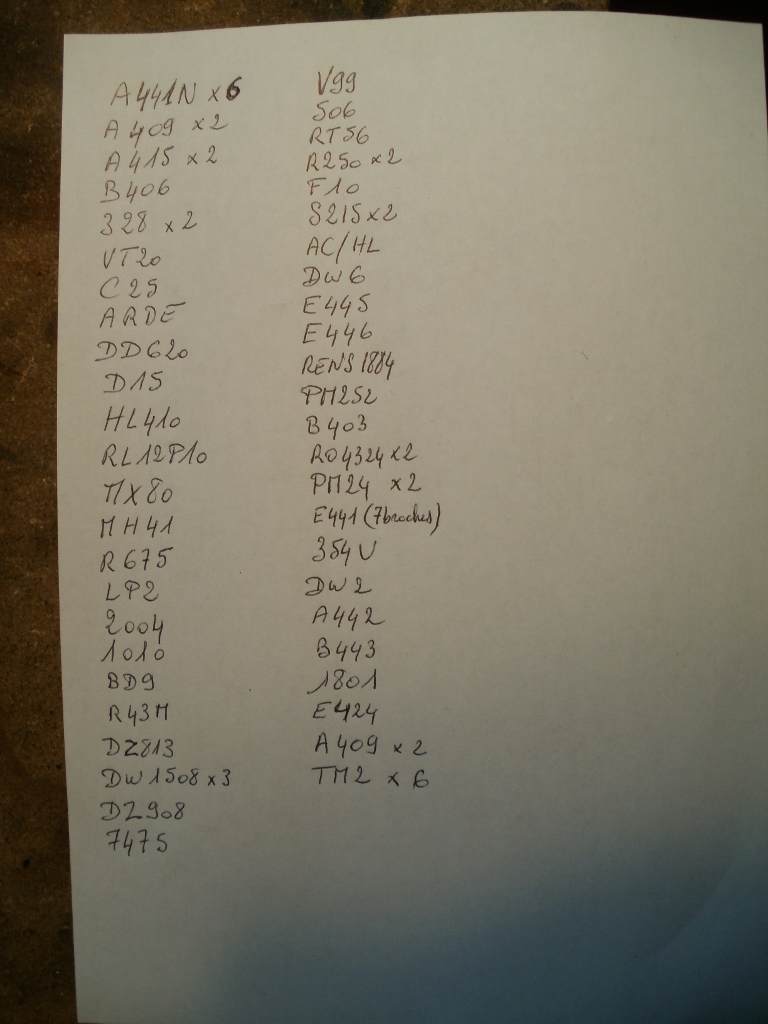 A441N x6
A409 x2
A415 x2
B406
328 x2
VT20
C25
ARDE
DD620
D15
HL410
RL12P10
MX80
MH41
R675
LP2
2004
1010
BD9
R43M
DZ813
DW1508 x3
DZ908
7475
V99
506
RT56
R250 x2
F10
S215 x2
AC/HL
DW6
E445
E446
RENS1884
PM252
B403
RO4324 x2
PM24 x2
E441 (7broches)
354V
DW2
A442
B443
1801
E424
A409 x2
TM2 x 6